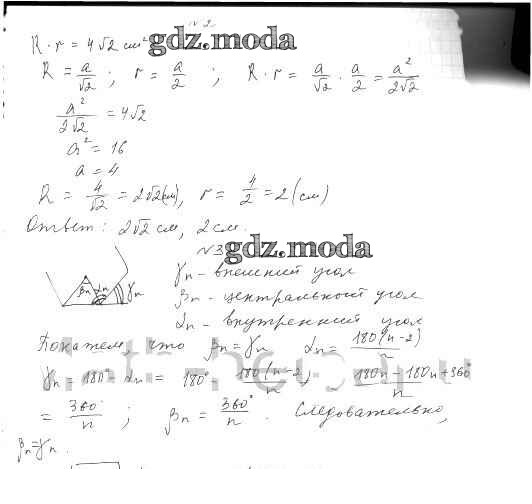 №2
R·r = 4√2 см² gdz.moda
R = a/√2 ; r = a/2 ; R·r = a/√2 · a/2 = a²/2√2
a²/2√2 = 4√2
a² = 16
a = 4
R = 4/√2 = 2√2(см), r = 4/2 = 2 (см)
Ответ: 2√2 см, 2 см.
№3 gdz.moda
βn αn γn
γn - внешний угол
βn - центральный угол
αn - внутренний угол
Покажем, что βn = γn αn = 180(n-2)/n
γn = 180° - αn = 180° - 180(n-2)/n = 180n - 180n + 360/n
= 360°/n ; βn = 360°/n . Следовательно,
βn = γn .